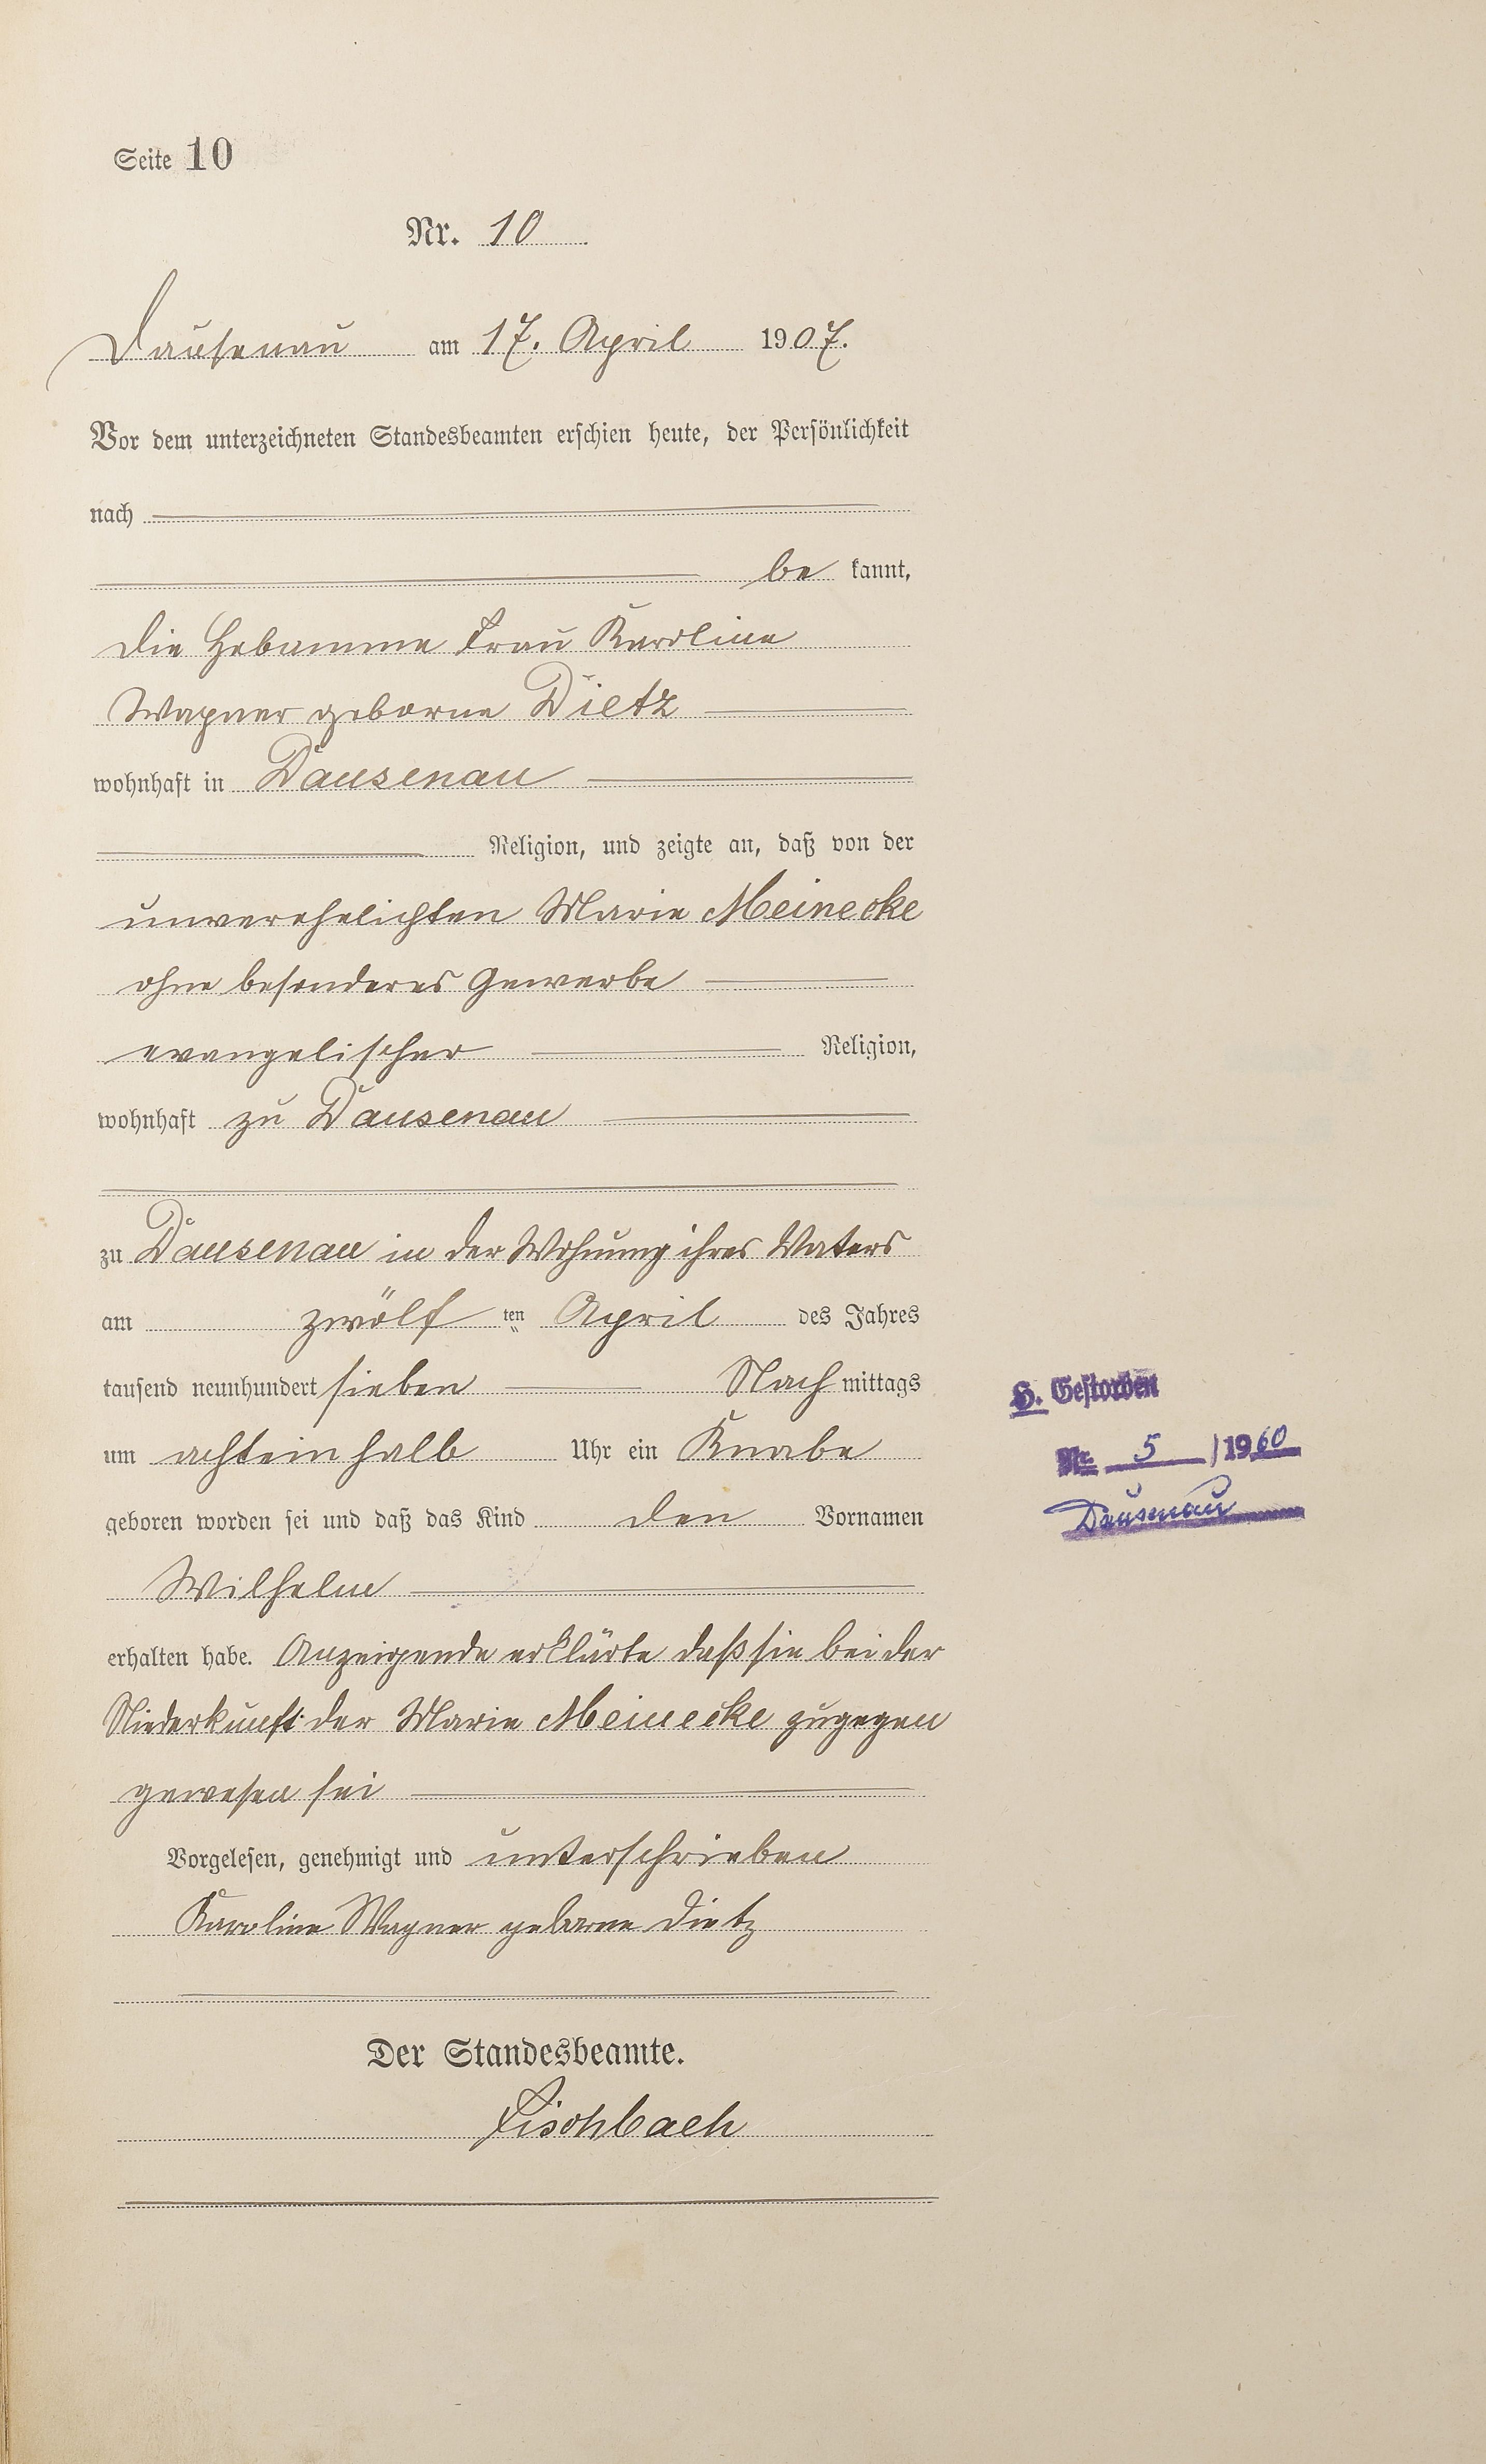 Seite 10
Nr. 10
Dausenau am 17. April 1907.
Vor dem unterzeichneten Standesbeamten erschien heute, der Persönlichkeit
nach
be kannt,
die Hebamme Frau Karoline
Wagner geborne Dietz
wohnhaft in Dausenau
Religion, und zeigte an, daß von der
unverehelichten Marie Meinecke
ohne besonderes Gewerbe
evangelischer Religion,
wohnhaft zu Dausenau
zu Dausenau in der Wohnung ihres Vaters
am zwölf ten April des Jahres
tausend neunhundert sieben Nach mittags
um achteinhalb Uhr ein Knabe
geboren worden sei und daß das Kind den Vornamen
Wilhelm
erhalten habe. Anzeigende erklärte daß sie bei der
Niederkunft der Marie Meinecke zugegen
gewesen sei
Vorgelesen, genehmigt und unterschrieben
Karoline Wagner geborne Dietz
Der Standesbeamte.
Fischbach
H. Gestorben
Nr. 5 /1960
Dausenau